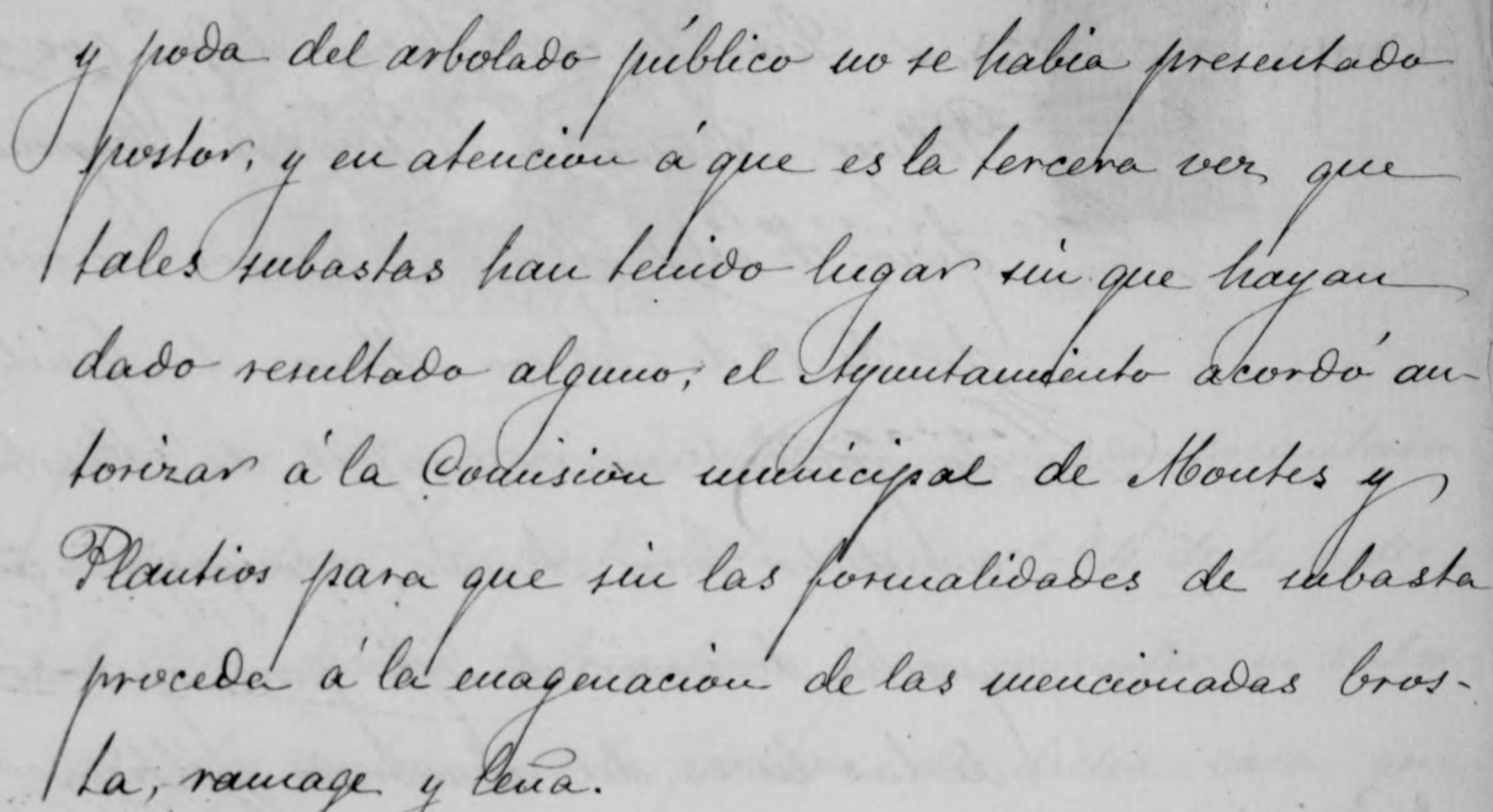 y poda del arbolado público no se habia presentado
postor, y en atencion á que es la tercera vez que
tales subastas han tenido lugar sin que hayan
dado resultado alguno; el Ayuntamiento acordó au-
torizar á la Comision municipal de Montes y
Plantios para que sin las formalidades de subasta
proceda á la enagenacion de las mencionadas bros-
ta, ramage y leña.